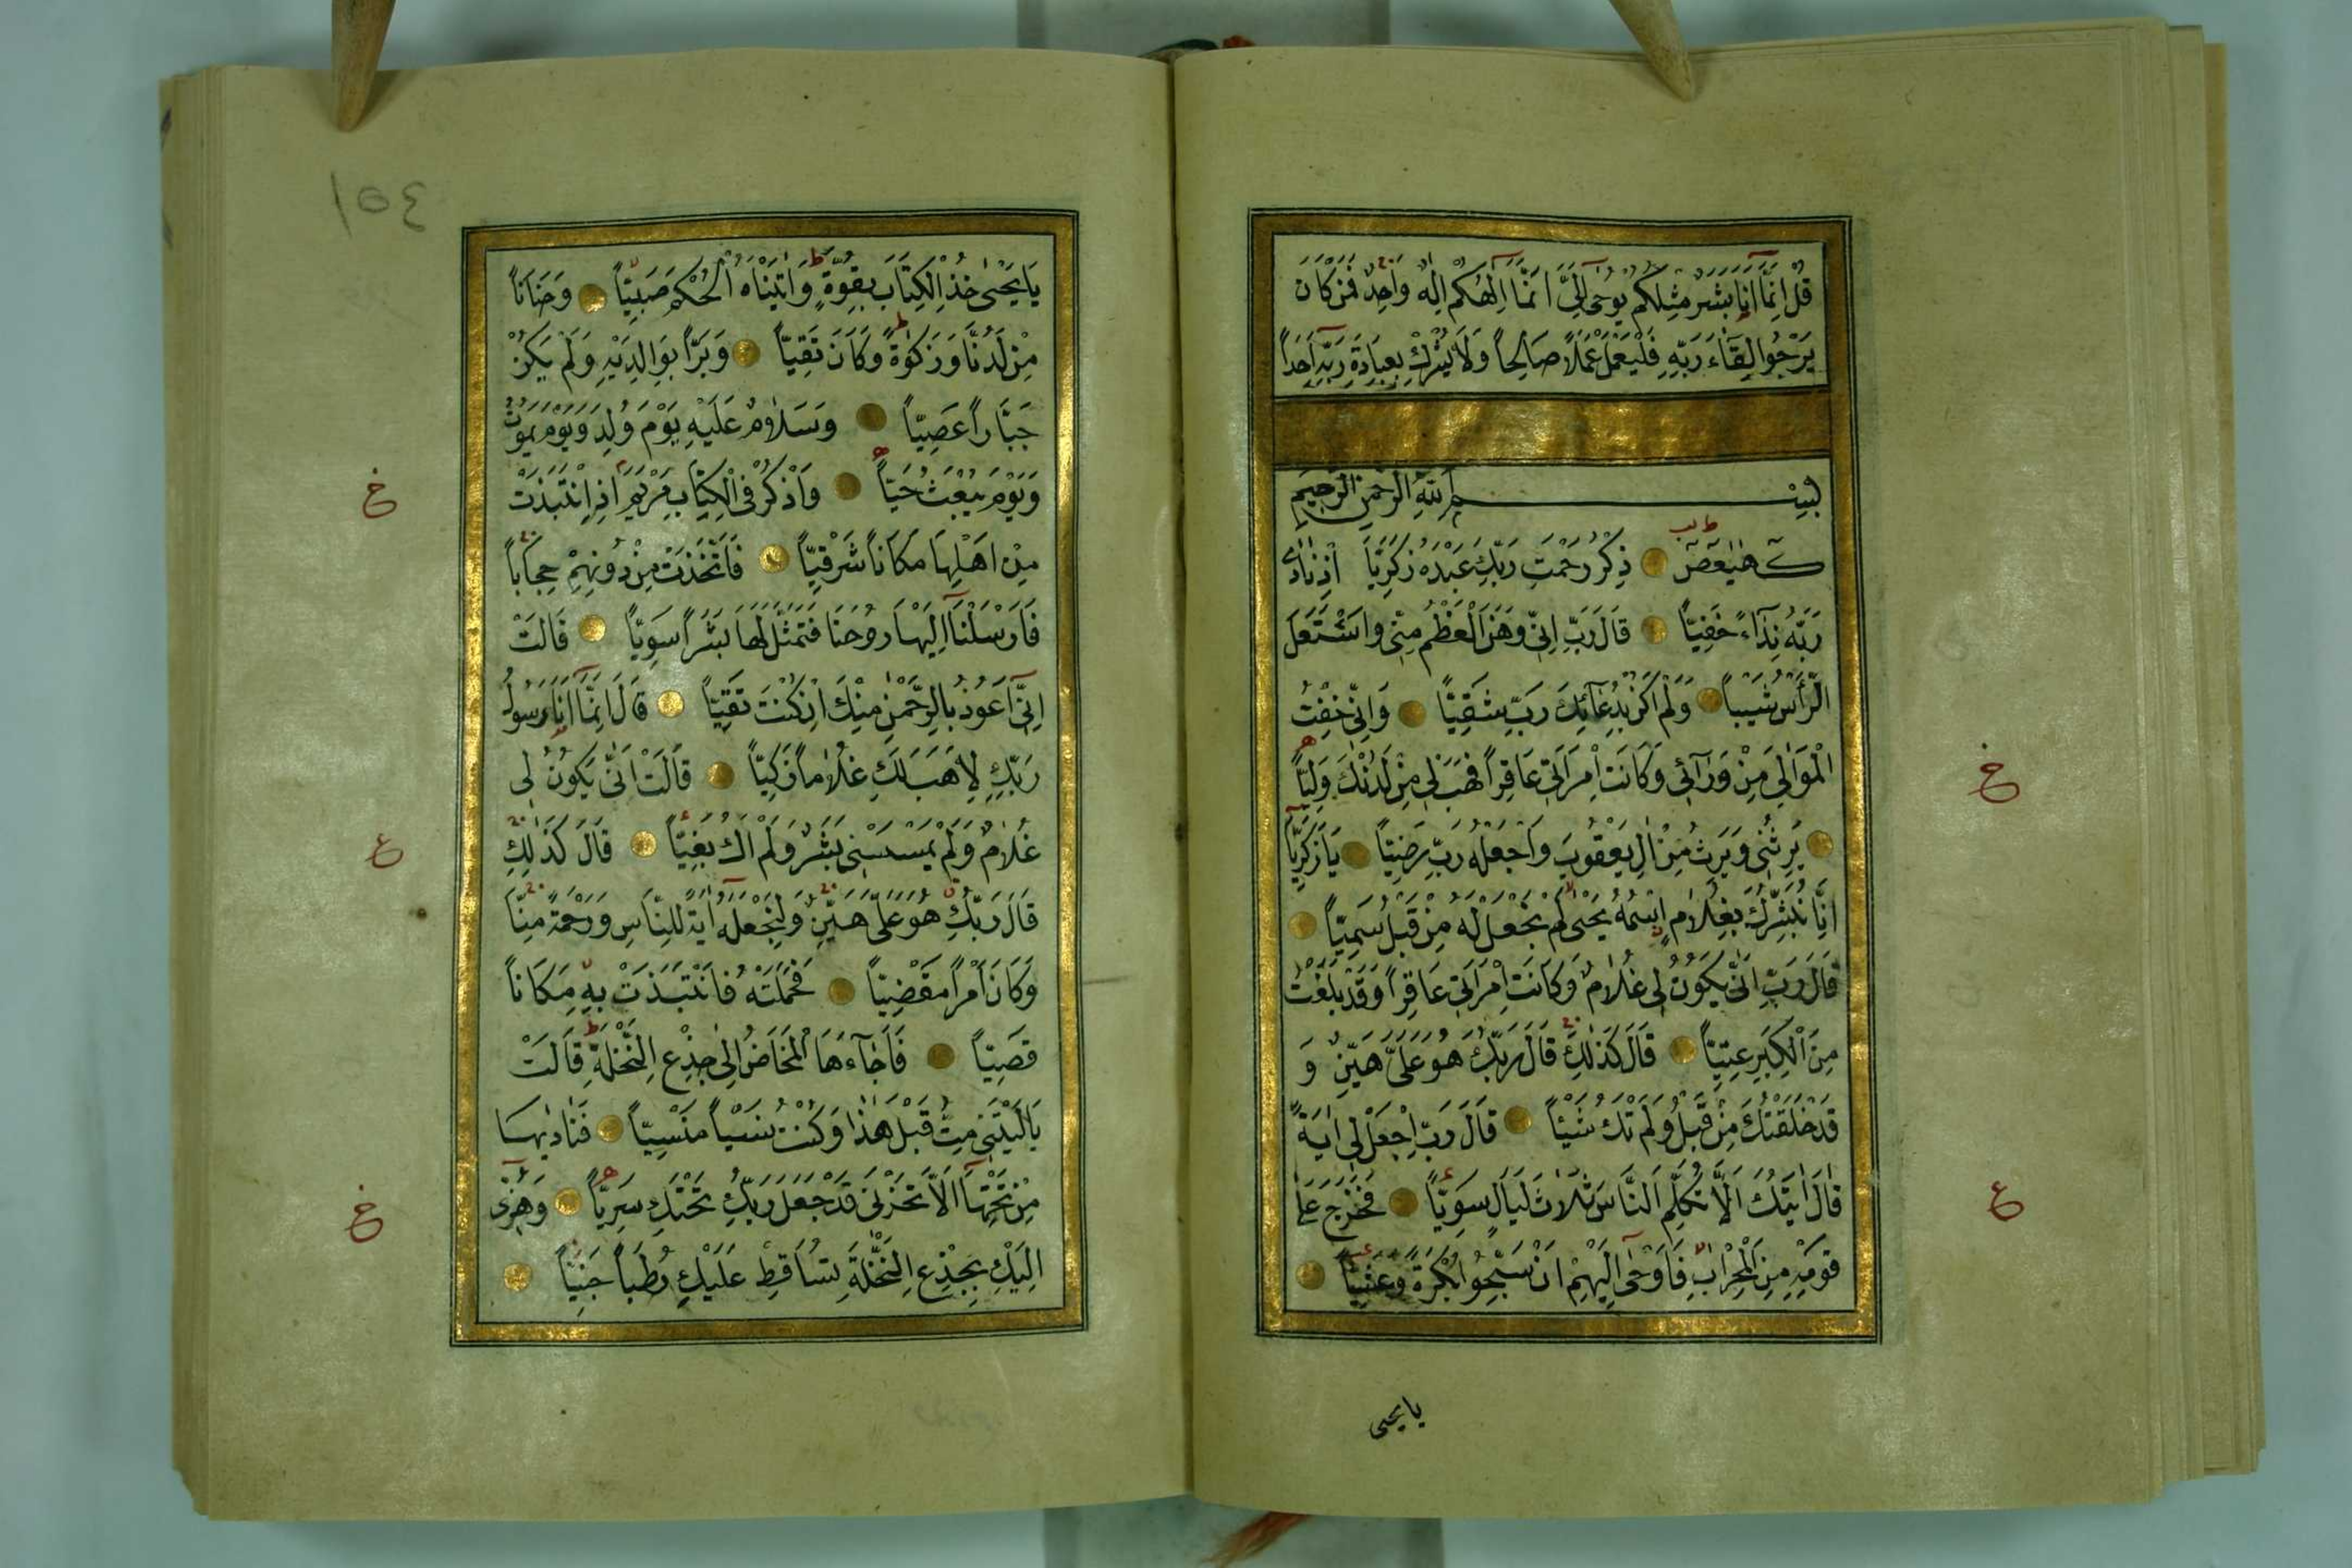 قُلْ اِنَّمَآ اَنَا۬ بَشَرٌ مِثْلُكُمْ يُوحٰٓى اِلَيَّ اَنَّمَآ اِلٰهُكُمْ اِلٰهٌ وَاحِدٌ فَمَنْ كَانَ
يَرْجُوا لِقَٓاءَ رَبِّهِ فَلْيَعْمَلْ عَمَلًا صَالِحاً وَلَا يُشْرِكْ بِعِبَادَةِ رَبِّهِٓ اَحَداً
بِسْمِ اللّٰهِ الرَّحْمٰنِ الرَّحِيمِ
كٓهٰيٰعٓصٓ ذِكْرُ رَحْمَتِ رَبِّكَ عَبْدَهُ زَكَرِيَّا اِذْ نَادٰى
رَبَّهُ نِدَٓاءً خَفِيّاً قَالَ رَبِّ اِنِّي وَهَنَ الْعَظْمُ مِنِّي وَاشْتَعَلَ
الرَّأْسُ شَيْباً وَلَمْ اَكُنْ بِدُعَٓائِكَ رَبِّ شَقِيّاً وَاِنِّي خِفْتُ
الْمَوَالِيَ مِنْ وَرَٓائِي وَكَانَتِ امْرَاَتِي عَاقِراً فَهَبْ لِي مِنْ لَدُنْكَ وَلِيّاً
يَرِثُنِي وَيَرِثُ مِنْ اٰلِ يَعْقُوبَ وَاجْعَلْهُ رَبِّ رَضِيّاً يَا زَكَرِيَّٓا
اِنَّا نُبَشِّرُكَ بِغُلَامٍ اِسْمُهُ يَحْيٰى لَمْ نَجْعَلْ لَهُ مِنْ قَبْلُ سَمِيّاً
قَالَ رَبِّ اَنّٰى يَكُونُ لِي غُلَامٌ وَكَانَتِ امْرَاَتِي عَاقِراً وَقَدْ بَلَغْتُ
مِنَ الْكِبَرِ عِتِيّاً قَالَ كَذٰلِكَ قَالَ رَبُّكَ هُوَ عَلَيَّ هَيِّنٌ وَ
قَدْ خَلَقْتُكَ مِنْ قَبْلُ وَلَمْ تَكُ شَيْئاً قَالَ رَبِّ اجْعَلْ لِي اٰيَةً
قَالَ اٰيَتُكَ اَلَّا تُكَلِّمَ النَّاسَ ثَلَاثَ لَيَالٍ سَوِيّاً فَخَرَجَ عَلٰى
قَوْمِهِ مِنَ الْمِحْرَابِ فَاَوْحٰٓى اِلَيْهِمْ اَنْ سَبِّحُوا بُكْرَةً وَعَشِيّاً
يا يحيى
خ
ع
١٥٤
يَا يَحْيٰى خُذِ الْكِتَابَ بِقُوَّةٍ وَاٰتَيْنَاهُ الْحُكْمَ صَبِيّاً وَحَنَاناً
مِنْ لَدُنَّا وَزَكٰوةً وَكَانَ تَقِيّاً وَبَرّاً بِوَالِدَيْهِ وَلَمْ يَكُنْ
جَبَّاراً عَصِيّاً وَسَلَامٌ عَلَيْهِ يَوْمَ وُلِدَ وَيَوْمَ يَمُوتُ
وَيَوْمَ يُبْعَثُ حَيّاً وَاذْكُرْ فِي الْكِتَابِ مَرْيَمَ اِذِ انْتَبَذَتْ
مِنْ اَهْلِهَا مَكَاناً شَرْقِيّاً فَاتَّخَذَتْ مِنْ دُونِهِمْ حِجَاباً
فَاَرْسَلْنَٓا اِلَيْهَا رُوحَنَا فَتَمَثَّلَ لَهَا بَشَراً سَوِيّاً قَالَتْ
اِنِّٓي اَعُوذُ بِالرَّحْمٰنِ مِنْكَ اِنْ كُنْتَ تَقِيّاً قَالَ اِنَّمَٓا اَنَا۬ رَسُولُ
رَبِّكِ لِاَهَبَ لَكِ غُلَاماً زَكِيّاً قَالَتْ اَنّٰى يَكُونُ لِي
غُلَامٌ وَلَمْ يَمْسَسْنِي بَشَرٌ وَلَمْ اَكُ بَغِيّاً قَالَ كَذٰلِكِ
قَالَ رَبُّكِ هُوَ عَلَيَّ هَيِّنٌ وَلِنَجْعَلَهُٓ اٰيَةً لِلنَّاسِ وَرَحْمَةً مِنَّا
وَكَانَ اَمْراً مَقْضِيّاً فَحَمَلَتْهُ فَانْتَبَذَتْ بِهِ مَكَاناً
قَصِيّاً فَاَجَٓاءَهَا الْمَخَاضُ اِلٰى جِذْعِ النَّخْلَةِ قَالَتْ
يَا لَيْتَنِي مِتُّ قَبْلَ هٰذَا وَكُنْتُ نَسْياً مَنْسِيّاً فَنَادٰيهَا
مِنْ تَحْتِهَٓا اَلَّا تَحْزَنِي قَدْ جَعَلَ رَبُّكِ تَحْتَكِ سَرِيّاً وَهُزِّي
اِلَيْكِ بِجِذْعِ النَّخْلَةِ تُسَاقِطْ عَلَيْكِ رُطَباً جَنِيّاً
خ
ع
خ